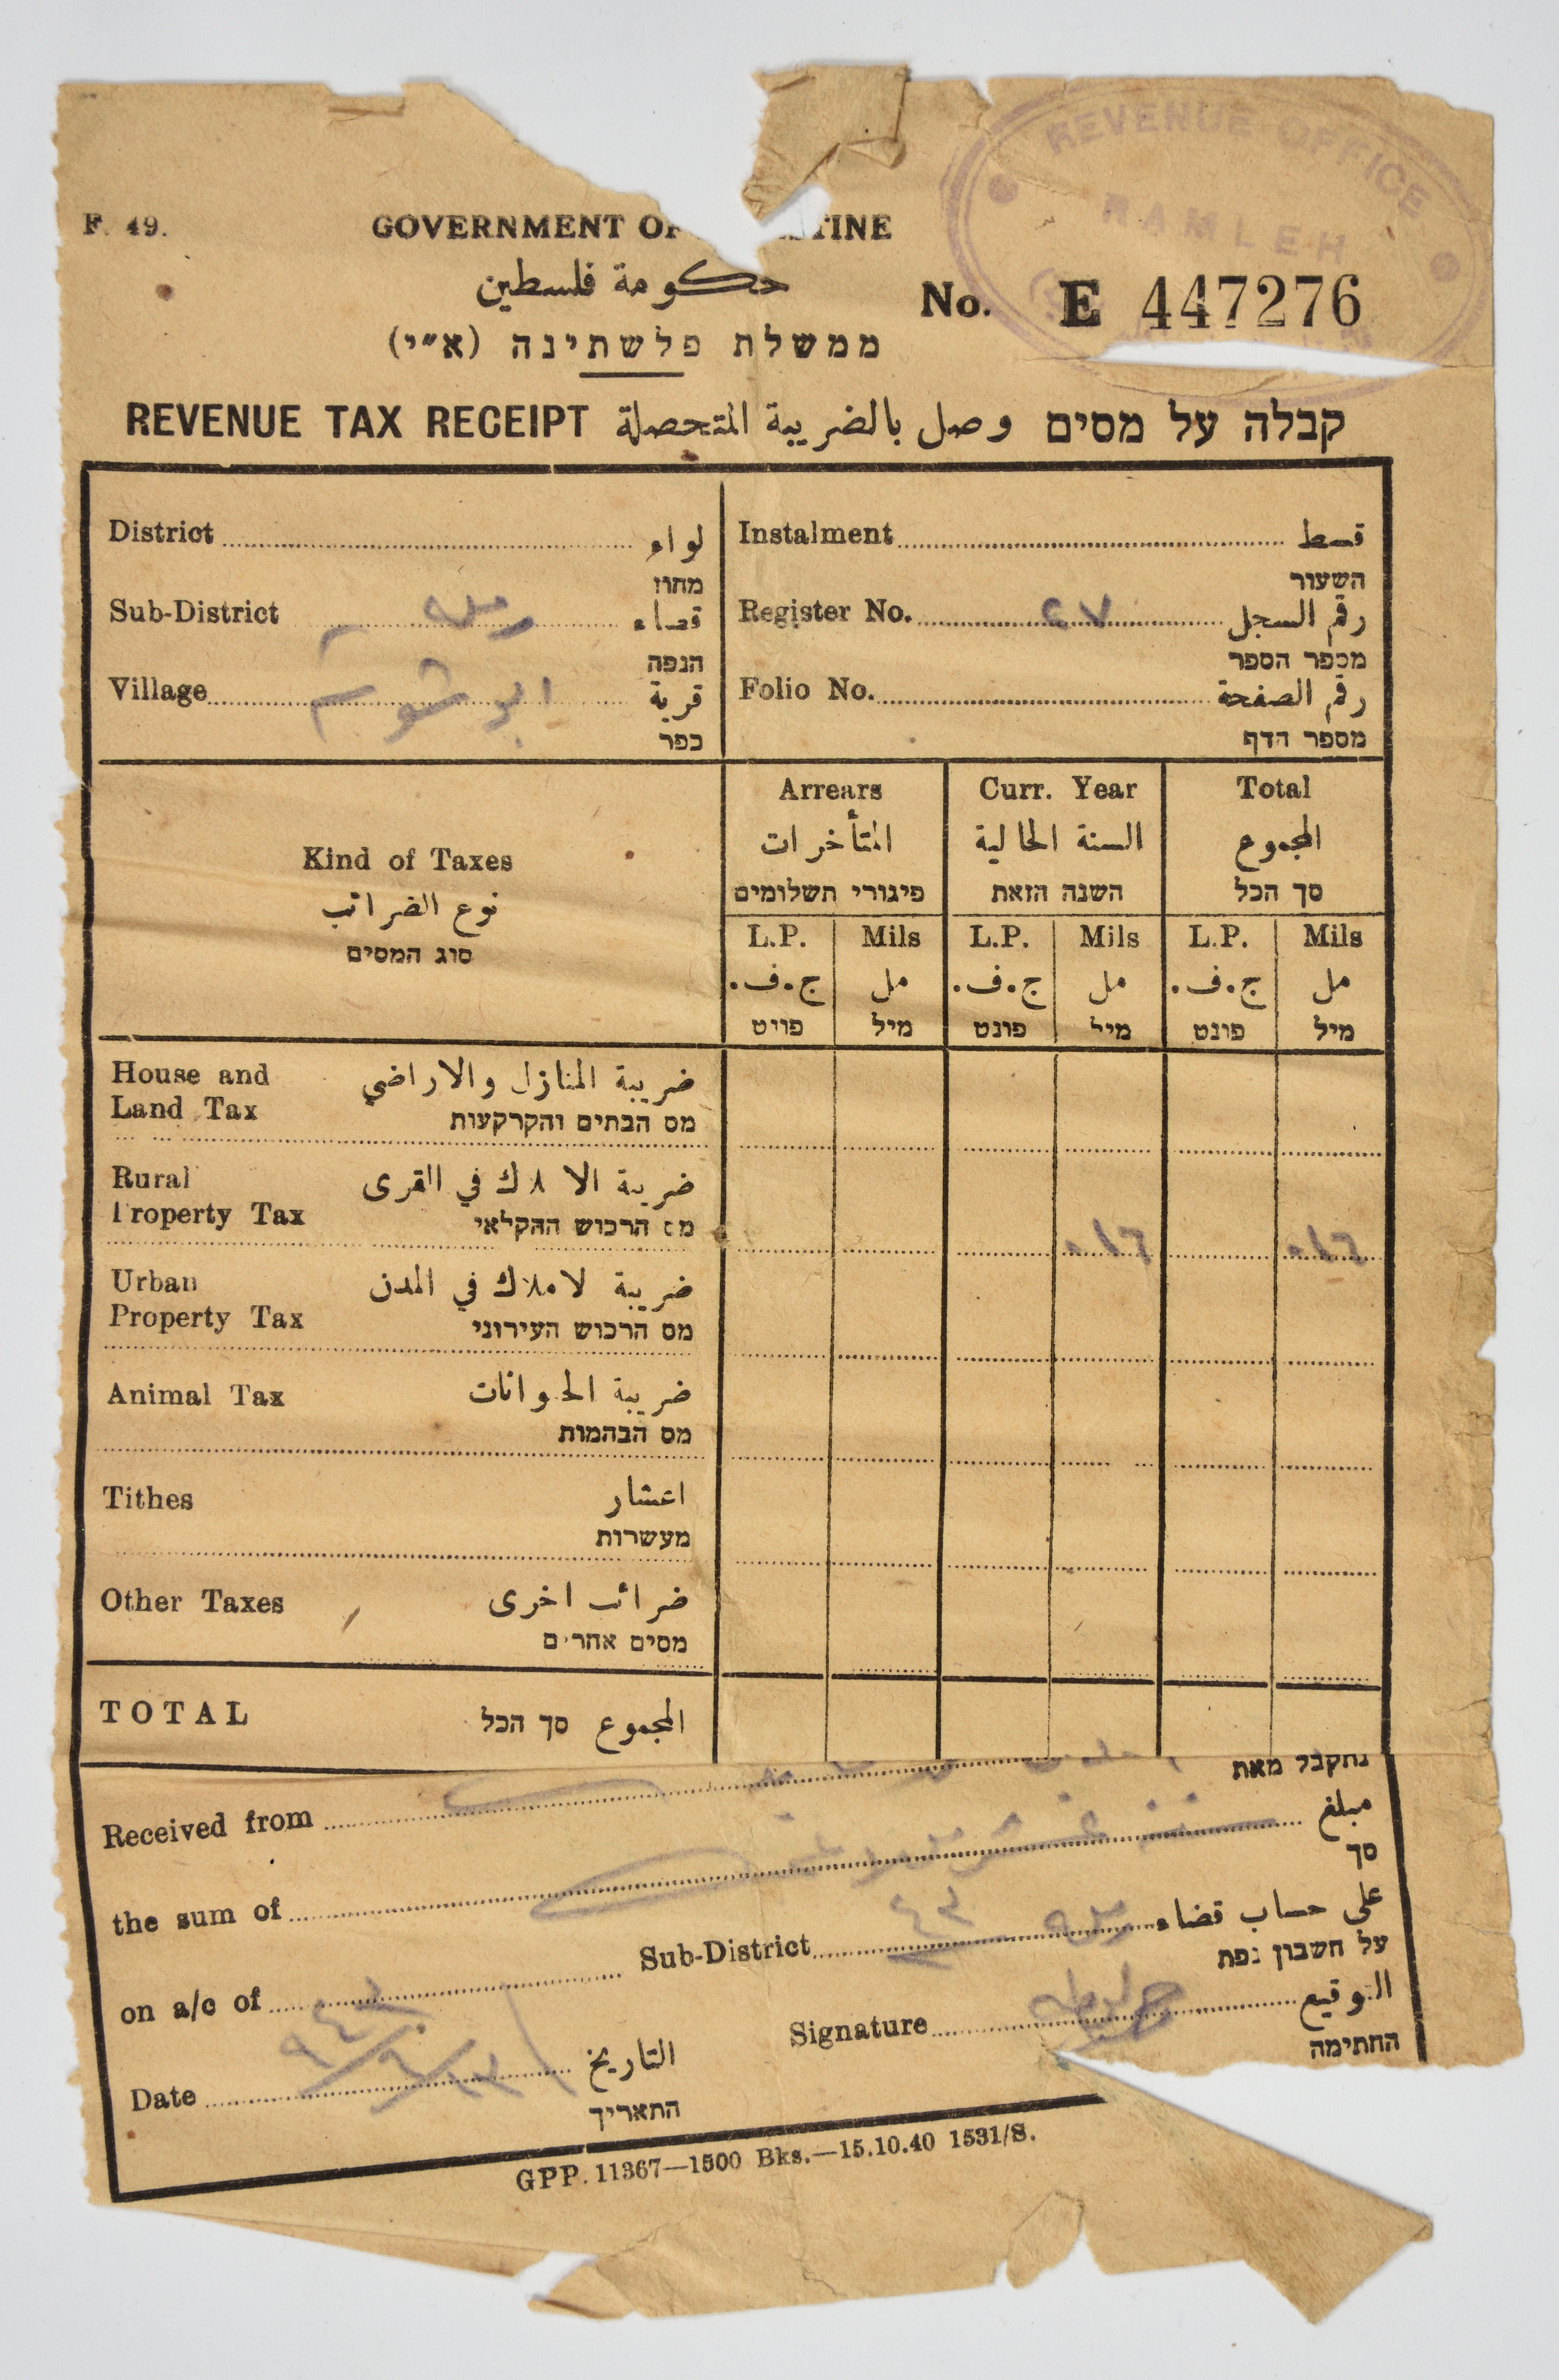 REVENUE OFFICE
RAMLEH
F. 49.
GOVERNMENT OF TINE
حكومة فلسطين
ממשלת פלשתינה (א״י)
No. E 447276
REVENUE TAX RECEIPT وصل بالضريبة المتحصلة קבלה על מסים
District لواء
מחוז
Sub-District رملة قضاء
הנפה
Village ابو شوشة قرية
כפר
Instalment قسط
השעור
Register No. ٤٧ رقم السجل
מספר הספר
Folio No. رقم الصفحة
מספר הדף
Kind of Taxes
نوع الضرائب
סוג המסים
Arrears
المتأخرات
פיגורי תשלומים
Curr. Year
السنة الحالية
השנה הזאת
Total
المجموع
סך הכל
L.P. Mils L.P. Mils L.P. Mils
ج.ف. مل ج.ف. مل ج.ف. مل
פונט מיל פונט מיל פונט מיל
House and Land Tax
ضريبة المنازل والاراضي
מס הבתים והקרקעות
Rural Property Tax
ضريبة الاملاك في القرى
מס הרכוש החקלאי
٠١٦ ٠١٦
Urban Property Tax
ضريبة الاملاك في المدن
מס הרכוש העירוני
Animal Tax
ضريبة الحيوانات
מס הבהמות
Tithes
اعشار
מעשרות
Other Taxes
ضرائب اخرى
מסים אחרים
TOTAL المجموع סך הכל
Received from נתקבל מאת
the sum of مبلغ
סך
on a/c of Sub-District رملة على حساب قضاء
על חשבון נפת
Signature التوقيع
החתימה
Date التاريخ
התאריך
GPP. 11367—1500 Bks.—15.10.40 1531/S.